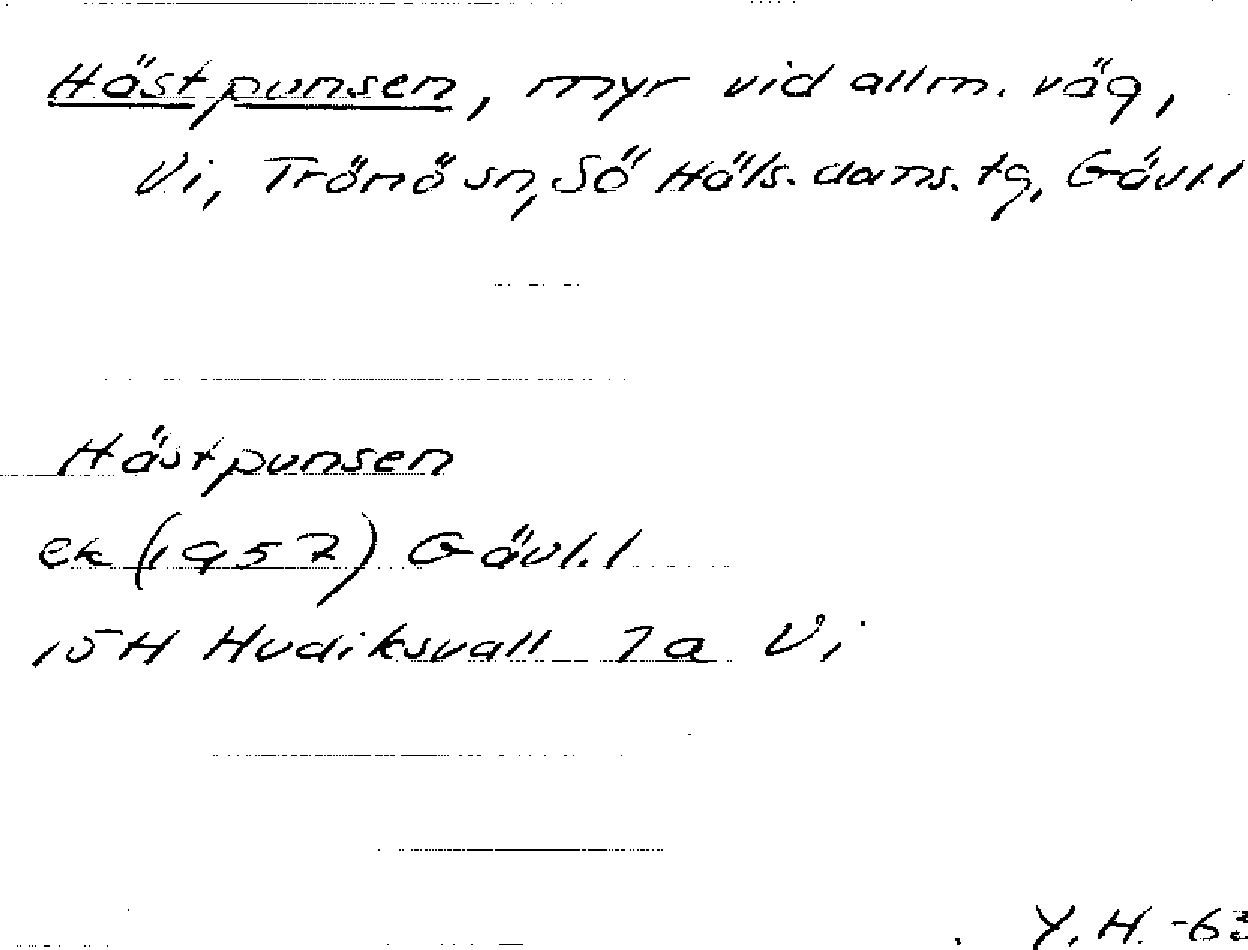 Hästpunsen, myr vid allm. väg,
Vi, Trönö sn, Sö Häls. doms. tg, Gävl. l
Hästpunsen
ek (1957) Gävl. l
15H Hudiksvall 7a Vi
Y. H. -63